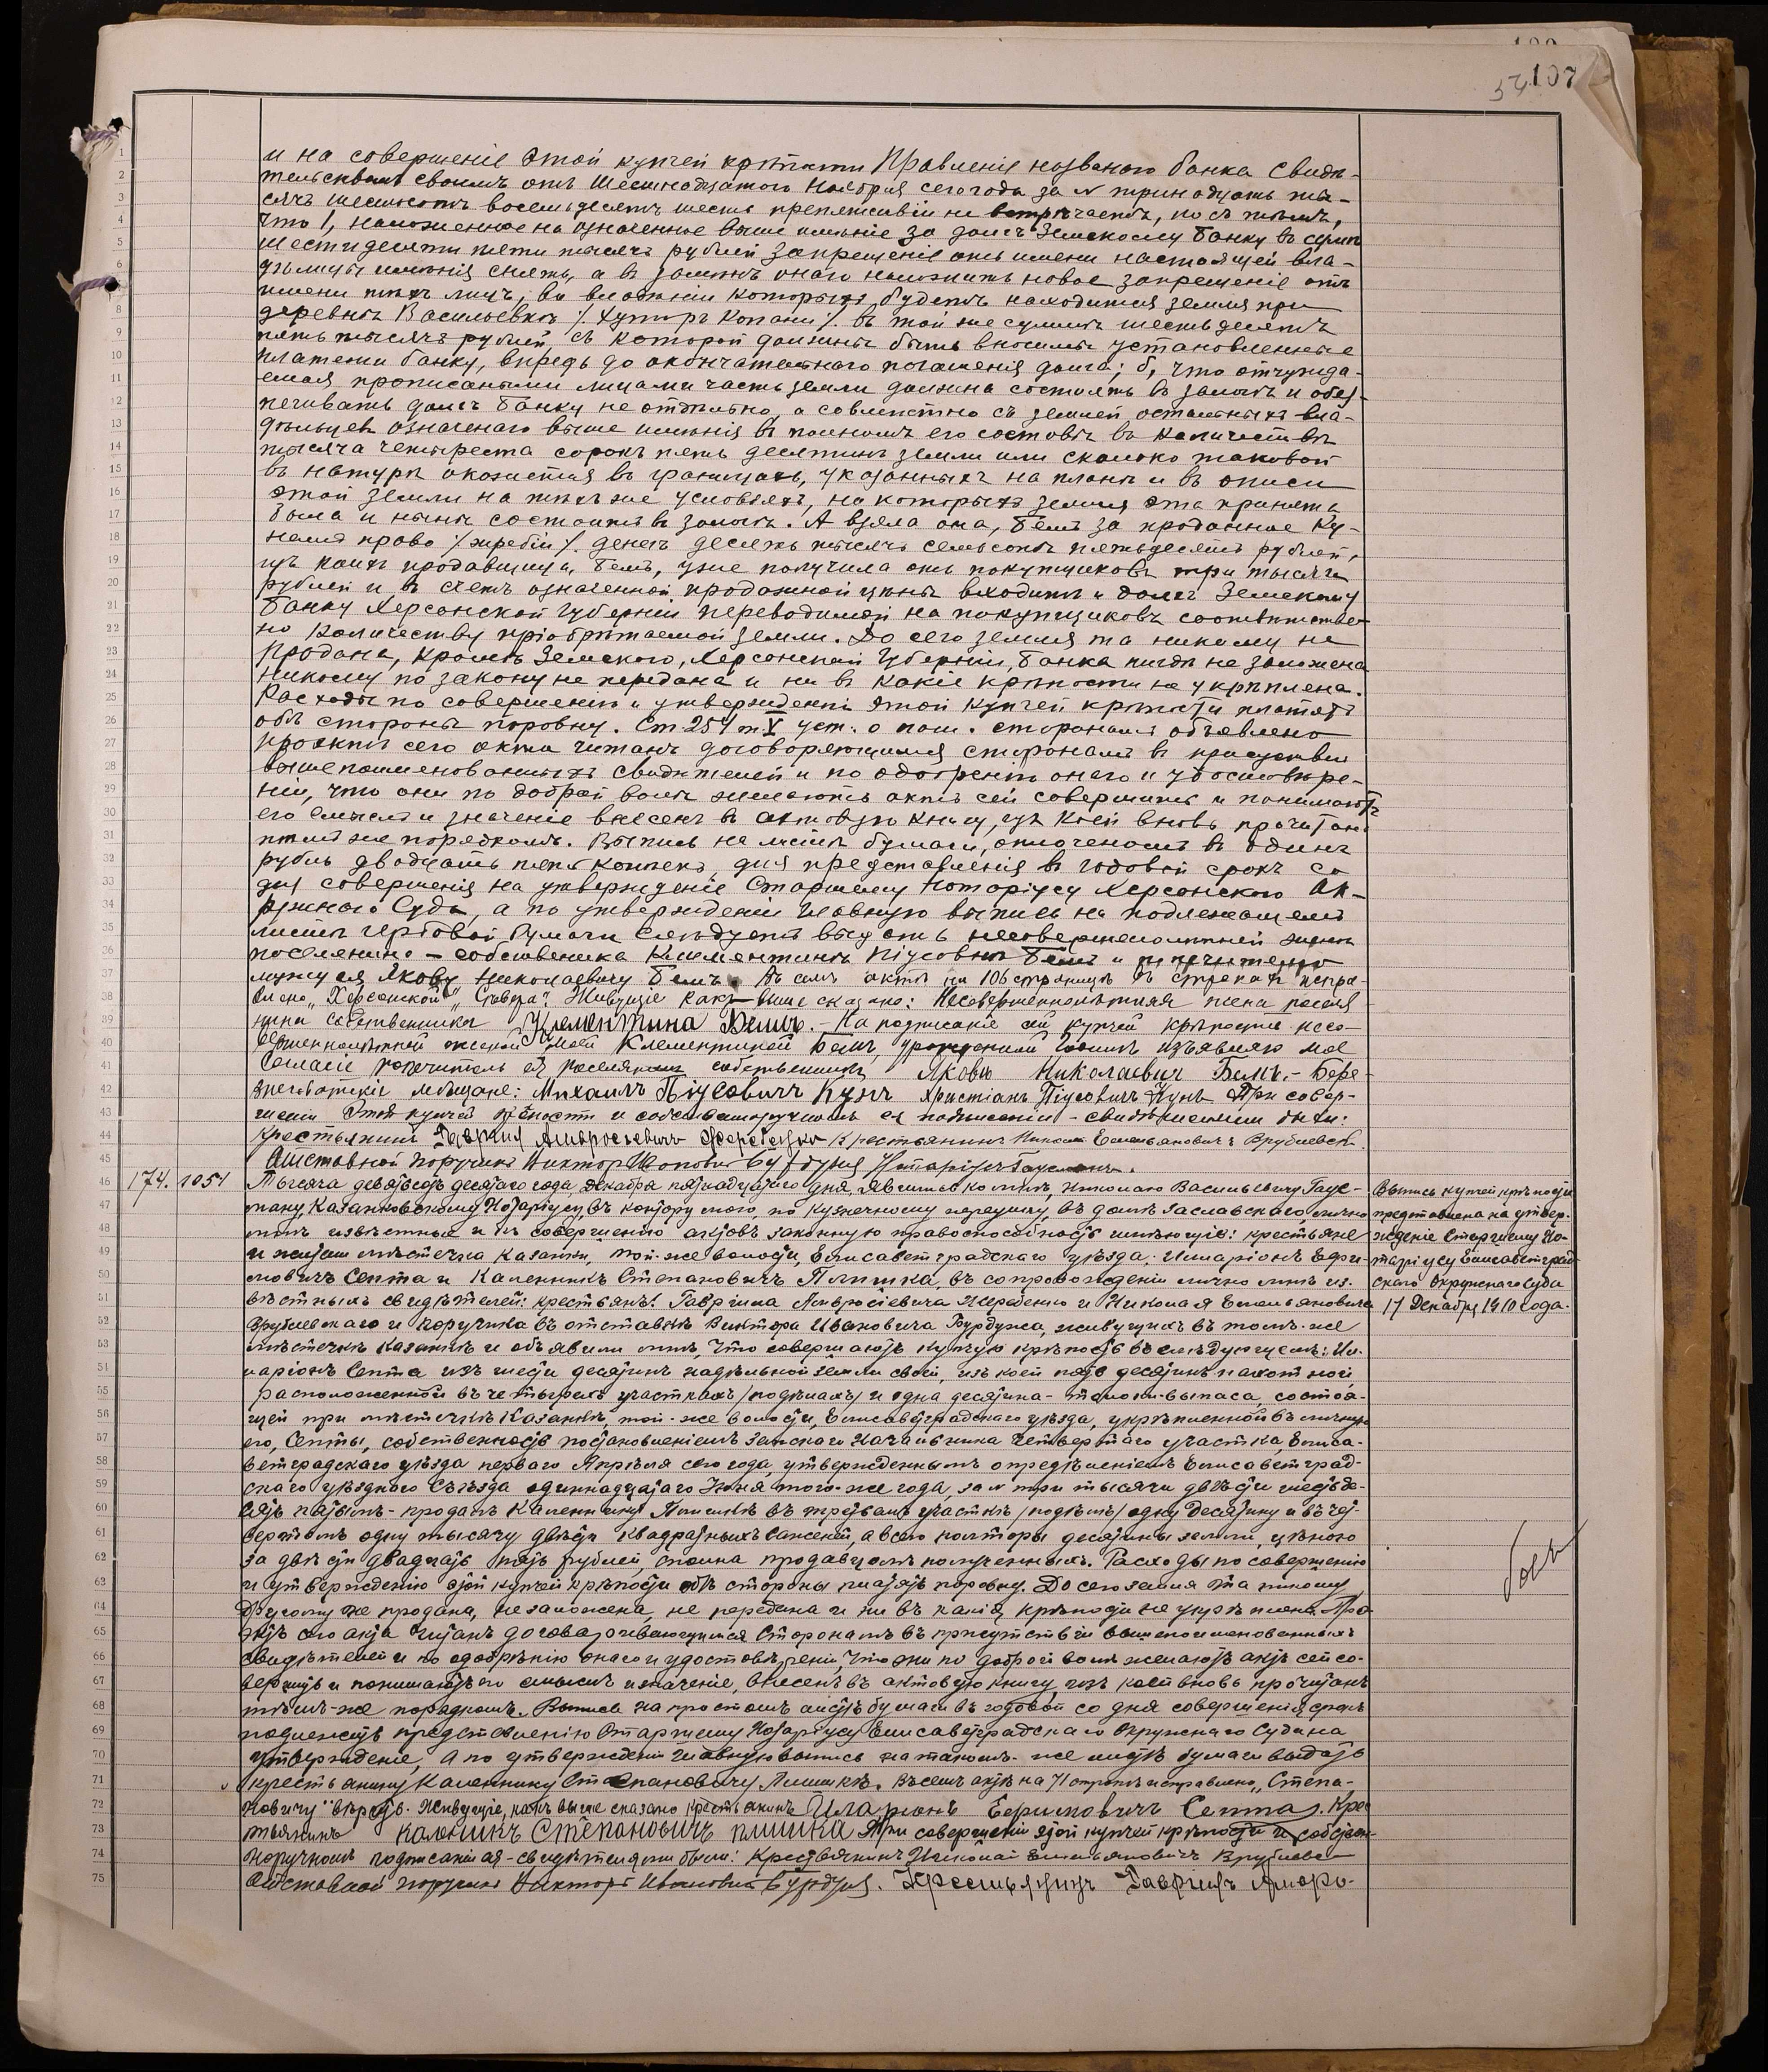 107
и на совершеніе этой купчей крѣпости Правленія названаго банка свидѣ-
тельствомъ своимъ отъ Шестнадцатаго Ноября сего года за № тринадцать ты-
сячъ шестьсотъ восемьдесятъ шесть препятствій не встрѣчаетъ, но съ тѣмъ,
что 1, наложенное на означенное выше имѣніе за долгъ Земскому банку въ суммѣ
шестидесяти пяти тысячъ рублей запрещеніе отъ имени настоящей вла-
дѣлицы имѣнія снять, а въ замѣнъ онаго наложить новое запрещеніе отъ
имени тѣхъ лицъ, во владѣніи которыхъ будетъ находится земля при
деревнѣ Васильевкѣ /. Хуторъ Копани /. въ той же суммѣ шестьдесятъ
пять тысячъ рублей, съ которой должны быть вносимы установленные
платежи банку, впредь до окончательнаго погашенія долга; б, что отчужда-
емая прописанными лицами часть земли должна состоять въ залогѣ и обез-
печивать долгъ Банку не отдѣльно, а совмѣстно съ землей остальныхъ вла-
дѣльцевъ означенаго выше имѣнія въ полномъ его составѣ въ количествѣ
тысяча четыреста сорокъ пять десятинъ земли или сколько таковой
въ натурѣ окажется въ границахъ, указанныхъ на планѣ и въ описи
этой земли на тѣхъ же условіяхъ, на которыхъ земля эта принята
была и нынѣ состоитъ въ залогѣ. А взяла она, Бемъ за проданное Ку-
намъ право /. жребій /. денегъ десять тысячъ семьсотъ пятьдесятъ рублей,
изъ коихъ продавщица, Бемъ, уже получила отъ покупщиковъ три тысячи
рублей и въ счетъ означенной продажной цѣны входитъ и долгъ Земскому
Банку Херсонской Губерніи переводимой на покупщиковъ соотвѣтствен-
но количеству пріобрѣтаемой земли. До сего земля та никому не
продана, кромѣ Земского, Херсонской Губерніи, банка нигдѣ не заложена
никому по закону не передана и ни въ какіе крѣпости не укрѣплена.
Расходы по совершенію и утвержденію этой купчей крѣпости платятъ
обѣ стороны поровну. Ст 254 т V уст. о пош. сторонамъ объявлено
проектъ сего акта читанъ договоряющимся сторонамъ въ присутствіи
вышепоименованныхъ свидѣтелей и по одобренію онаго и удостовѣре-
ніи, что они по доброй волѣ желаютъ актъ сей совершить и понимаютъ
его смыслъ и значеніе внесенъ въ актовую книгу, изъ коей вновь прочитанъ
тѣмъ же порядкомъ. Выпись на листѣ бумаги, оплоченомъ въ одинъ
рубль двадцать пять копѣекъ, для представленія въ годовой срокъ со
дня совершенія на утвержденіе Старшему Нотаріусу Херсонского Ок-
ружного Суда, а по утвержденіи Главную выпись на подлежащемъ
листѣ гербовой бумаги слѣдуетъ выдать несовершеннолѣтней женѣ
поселянина - собственика Клементинѣ Піусовнѣ Бемъ и попечителю
мужу ея Якову Николаевичу Бемъ. Въ семъ актѣ на 106 страницѣ въ строкахъ испра-
влено „Херсонской“ Живущіе какъ выше сказано: Несовершеннолѣтняя жена поселя-
нина собственника Клементина Бемъ. - На подписаніе сей купчей крѣпости несо-
вершеннолѣтней женою моей Клементиной Бемъ, урожденной Кунъ изъявляю мое
согласіе попечитель ея поселянинъ собственникъ Яковъ Николаевичъ Бемъ. - Бере-
знеговатскіе мѣщане: Михаилъ Піусовичъ Кунъ Христіанъ Піусовичъ Кунъ При совер-
шеніи этой купчей крѣпости и собственноручномъ ея подписаніи - свидѣтелями были:
Крестьянинъ Гавріилъ Амвросьевичъ Жеребецко Крестьянинъ Николай Емельяновичъ Врублевскій.
Отставной поручикъ Викторъ Ивановичъ Бурдужа Нотаріусъ Гаусманъ.
174. 1054 Тысяча девятьсотъ десятаго года, Декабря пятнадцатаго дня, явились ко мнѣ, Николаю Васильевичу Гаус-
ману, Казанковскому Нотаріусу, въ контору мою, по Кузнечному переулку, въ домѣ Заславского, лично
мнѣ извѣстные и къ совершенію актовъ законную правоспособность имѣющіе: крестьяне
и жители мѣстечка Казанки, той-же волости, Елисаветградскаго уѣзда: Иларіонъ Ефи-
мовичъ Септа и Каленникъ Степановичъ Плишка, въ сопровожденіи лично мнѣ из-
вѣстныхъ свидѣтелей: крестьянъ: Гавріила Амвросіевича Жеребецко и Николая Емельяновича
Врублевскаго и поручика въ отставкѣ Виктора Ивановича Бурдужа, живущихъ въ томъ-же
мѣстечкѣ Казанкѣ и объявили мнѣ, что совершаютъ купчую крѣпость въ слѣдующемъ: Ил-
ларіонъ Септа изъ шести десятинъ надѣльной земли своей, изъ коей пять десятинъ пахотной
расположенной въ четырехъ участкахъ /подѣлахъ/ и одна десятина - толоки-выпаса, состоя-
щей при мѣстечкѣ Казанкѣ, той-же волости, Елисаветградскаго уѣзда, укрѣпленной въ личную
его, Септы, собственность постановленіемъ Земскаго Начальника Четвертаго участка, Елиса-
ветградскаго уѣзда перваго Апрѣля сего года, утвержденнымъ опредѣленіемъ Елисаветград-
скаго уѣзднаго Съѣзда одиннадцатаго Іюня того-же года, за № три тысячи двѣсти шестьде-
сятъ пятымъ - продалъ Каленнику Плишкѣ въ третьемъ участкѣ /подѣлѣ/ одну десятину и въ чет-
вертомъ одну тысячу двѣсти квадратныхъ саженей, а всего полторы десятины земли, цѣною
за двѣсти двадцать пять рублей, сполна продавцомъ полученныхъ. Расходы по совершенію
и утвержденію этой купчей крѣпости обѣ стороны платятъ поровну. До сего земля та никому
другому не продана, не заложена, не передана и ни въ какія крѣпости не укрѣплена. Про-
эктъ сего акта читанъ договаривающимся сторонамъ въ присутствіи вышепоименованныхъ
свидѣтелей и по одобренію онаго и удостовѣреніи, что они по доброй волѣ желаютъ актъ сей со-
вершить и понимаютъ его смыслъ и значеніе, внесенъ въ актовую книгу, изъ коей вновь прочитанъ
тѣмъ-же порядкомъ. Выпись на простомъ листѣ бумаги въ годовой со дня совершенія срокъ
подлежитъ представленію Старшему Нотаріусу Елисаветградскаго Окружнаго Суда на
утвержденіе, а по утвержденіи Главную выпись на такомъ-же листѣ бумаги выдать
крестьянину Каленнику Степановичу Плишкѣ. Въ семъ актѣ на 71 строкѣ исправлено „Степа-
новичу“ вѣрить. Живущіе, какъ выше сказано крестьянинъ Иларіонъ Ефимовичъ Септа. Крес
тьянинъ Каленикъ Степановичъ Плишка При совершеніи этой купчей крѣпости и собствен-
норучномъ подписаніи ея - свидѣтелями были: Крестьянинъ Николай Емельяновичъ Врублевскій
Отставной поручикъ Викторъ Ивановичъ Бурдужа. Крестьянинъ Гавріилъ Амвро-
Выпись купчей крѣпости
представлена на утвер-
жденіе Старшему Но-
таріусу Елисаветград-
скаго Окружнаго Суда
17 Декабря 1910 года.